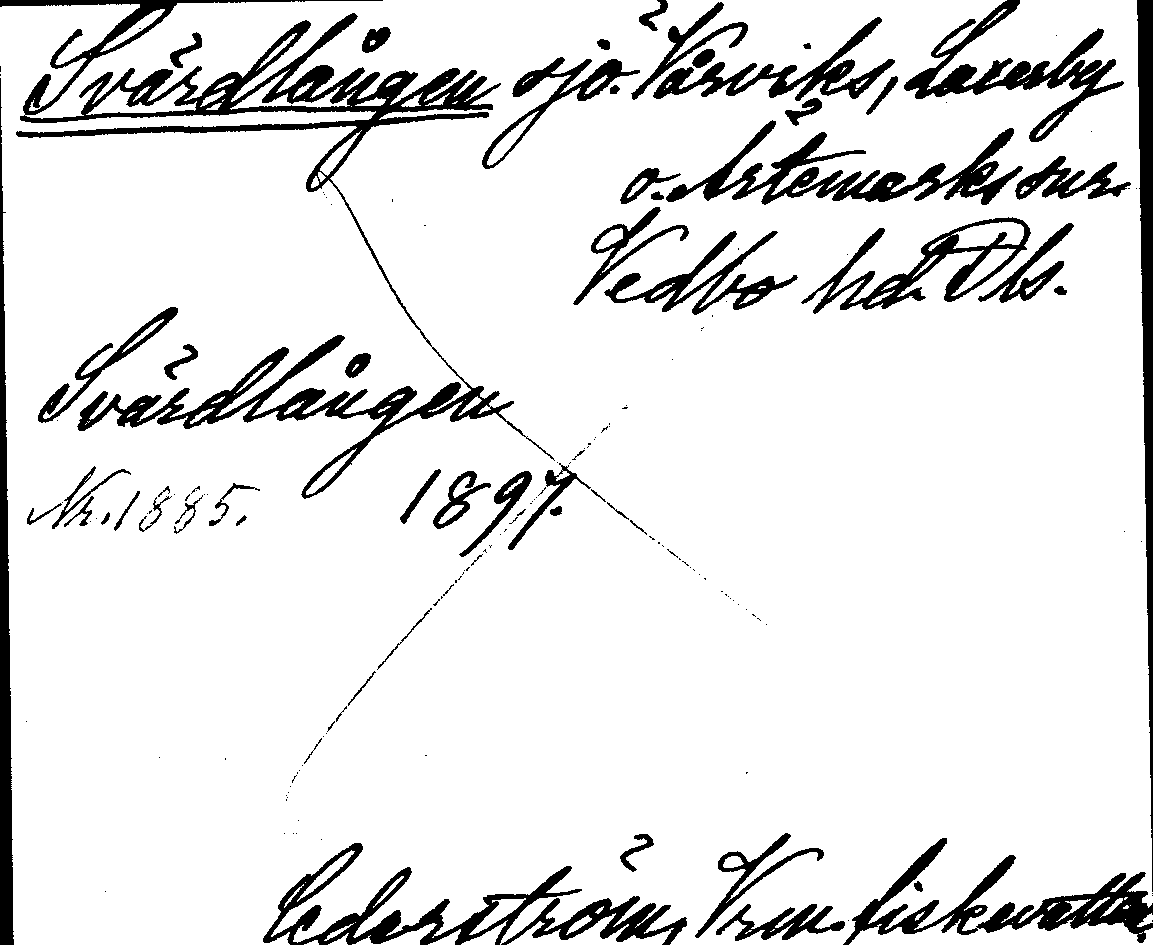 Svärdlången sjö. Vårviks, Laxarby
o. Ärtemarks snr.
Vedbo hd. Dls.
Svärdlången
Nr. 1885. 1897.
Cederström, Vrm. fiskevatten.